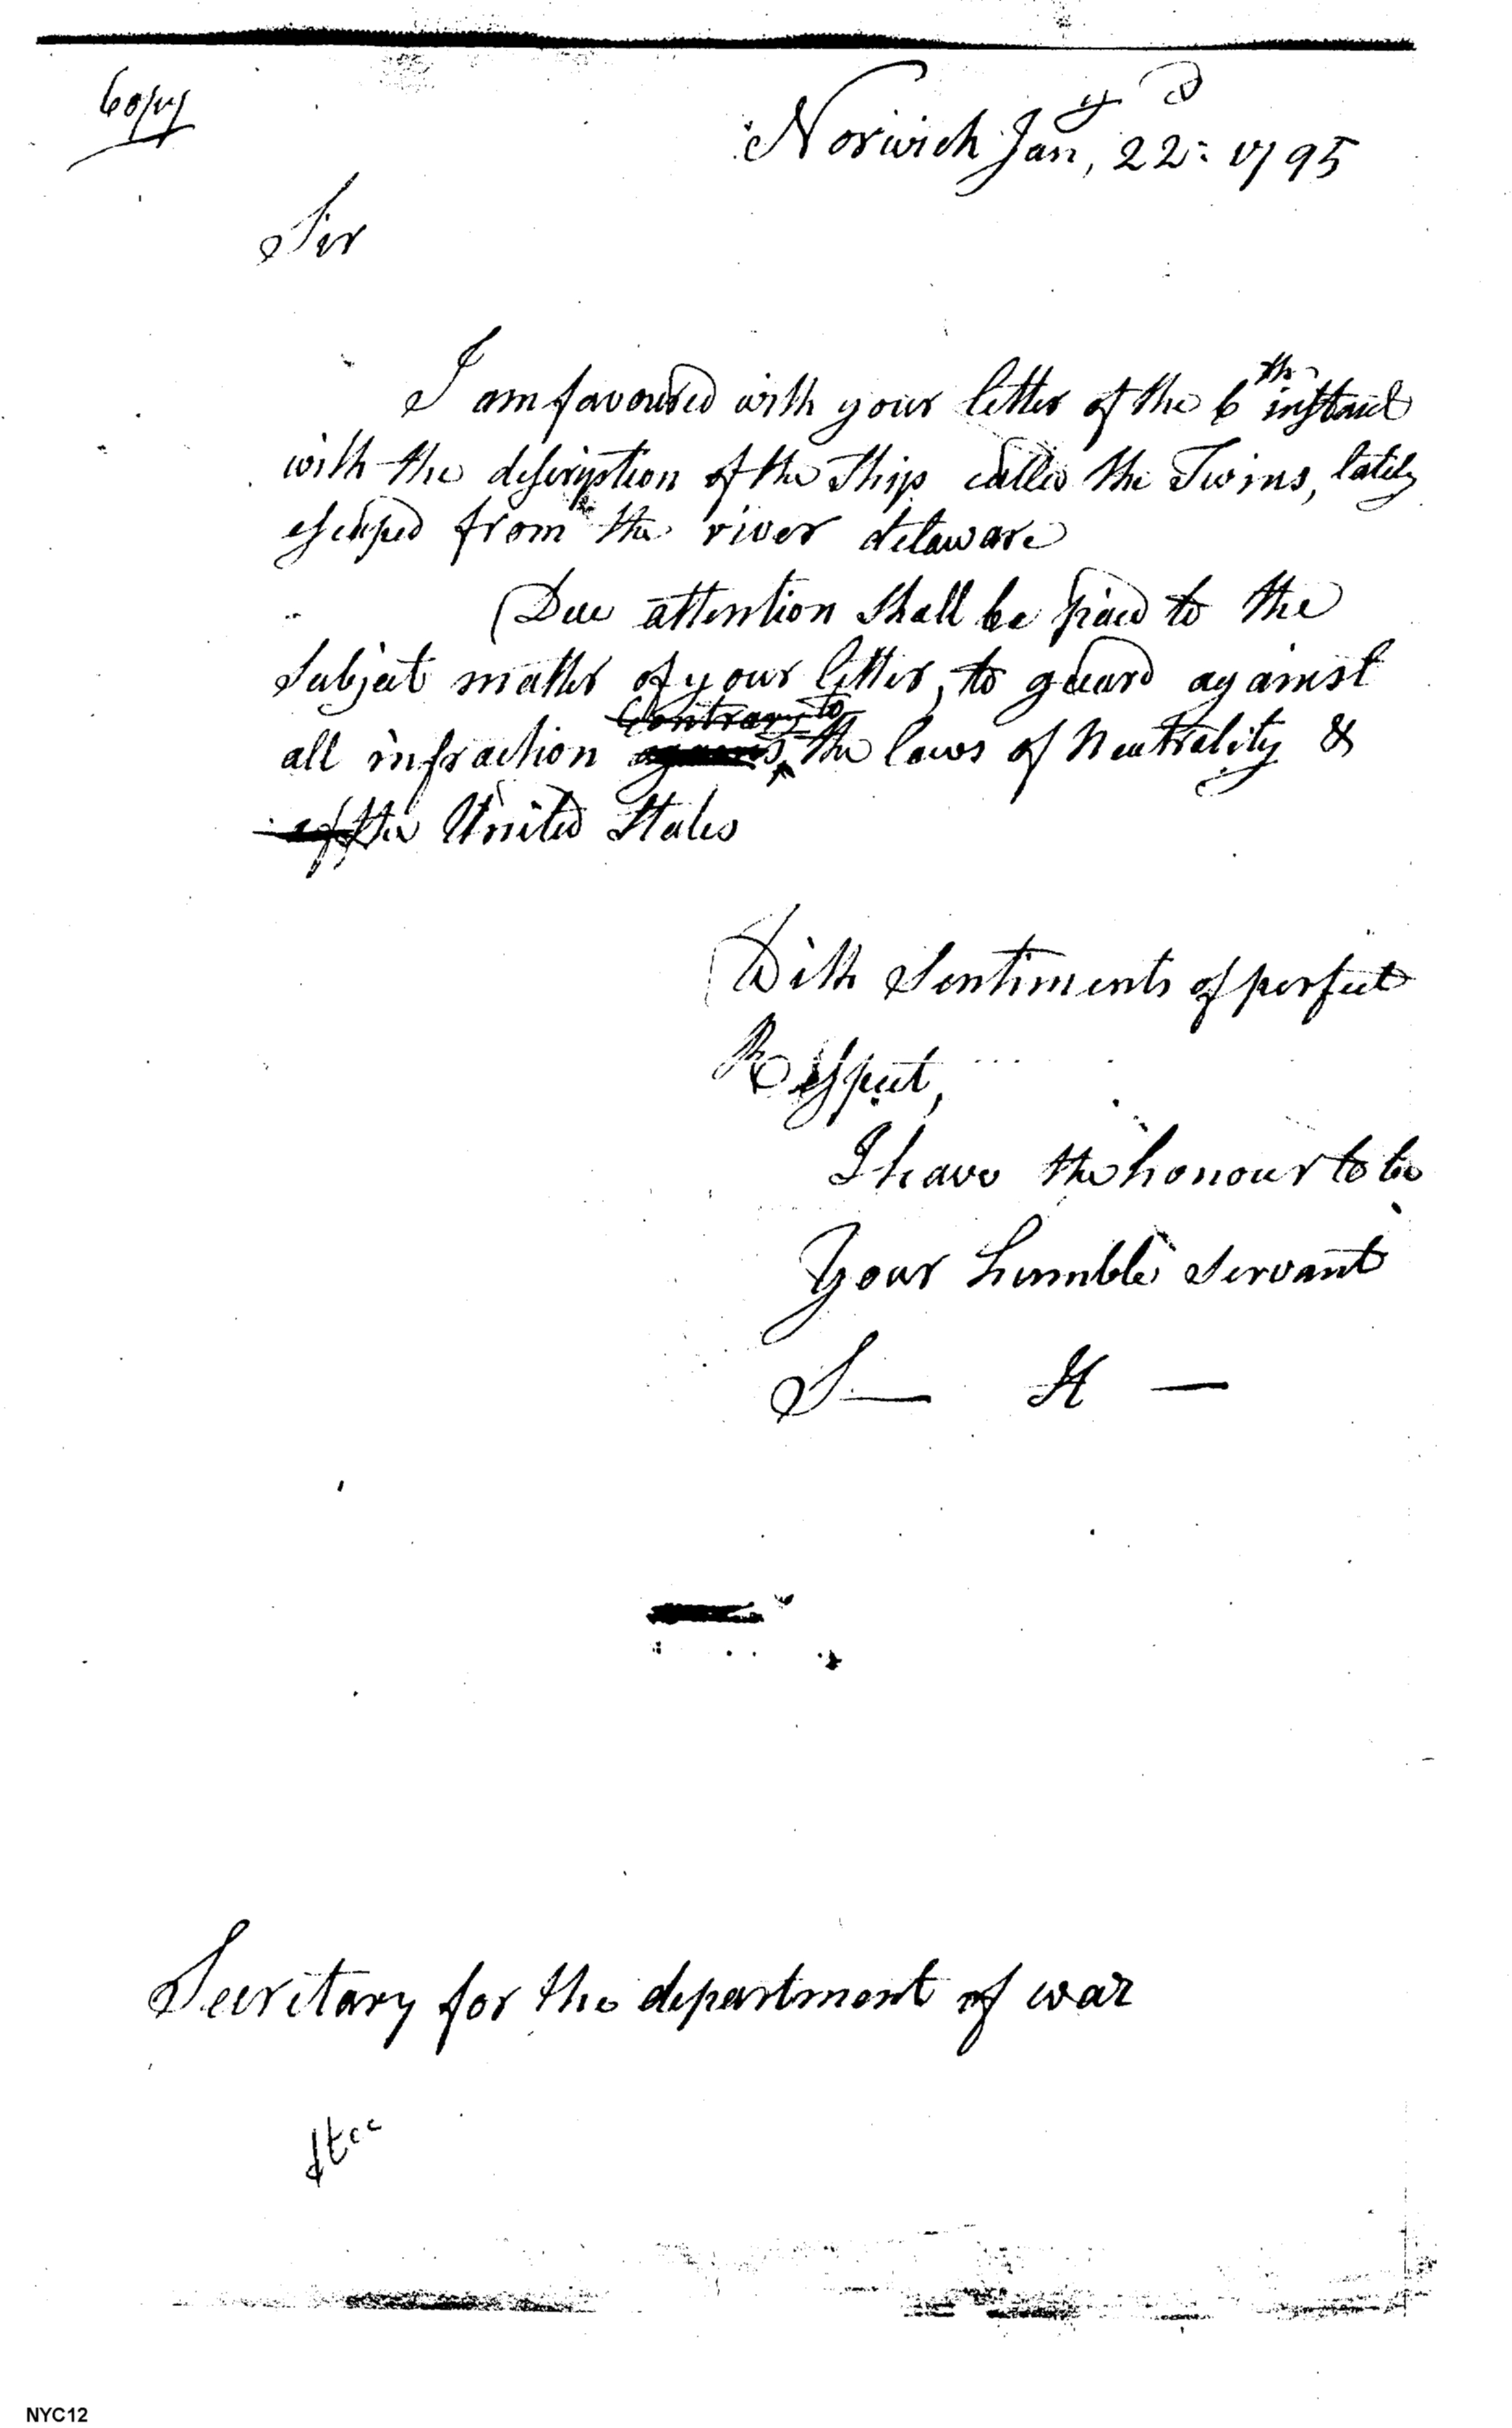 Copy
Norwich Jany, 22d 1795
Sir
I am favoured with your letter of the 6th instant
with the description of the Ship called the Twins, lately
escaped from the river delaware
Due attention shall be paid to the
Subject matter of your letter, to guard against
Contrary to
all infraction against the laws of Neutrality &
of the United States
With Sentiments of perfect
Respect,
I have the honour to be
Your humble Servant
S— H —
Secretary for the department of war
NYC12